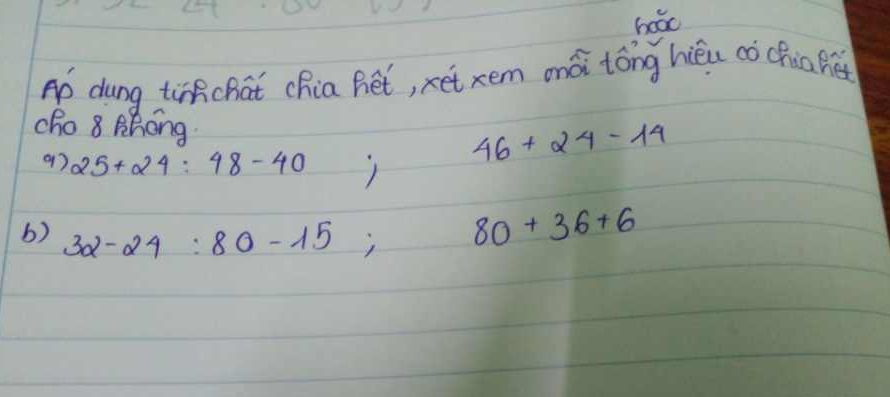 hoặc
Áp dụng tính chất chia hết, xét xem mỗi tổng hiệu có chia hết
cho 8 không.
a) 25 + 24 : 48 - 40 ; 46 + 24 - 14
b) 32 - 24 : 80 - 15 ; 80 + 36 + 6